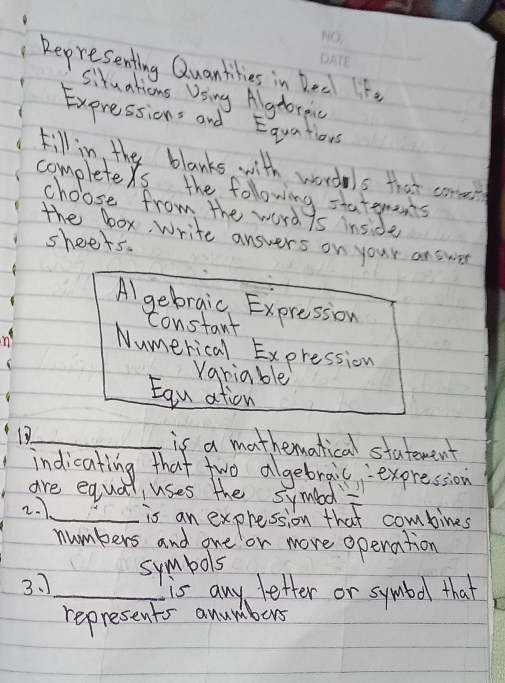 NO.
DATE
Representing Quantities in Real life
Situations Using Algebraic
Expressions and Equations
Fill in the blanks with word/s that correctly
complete/s the following statements
choose from the word/s inside
the box. Write answers on your answer
sheets.
Algebraic Expression
Constant
Numerical Expression
Variable
Equation
1.) ________ is a mathematical statement
indicating that two algebraic expression
are equal, uses the symbol "="
2.) ________ is an expression that combines
numbers and one or more operation
symbols
3.) ________ is any letter or symbol that
represents anumbers